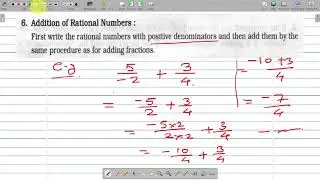 6. Addition of Rational Numbers :
First write the rational numbers with positive denominators and then add them by the
same procedure as for adding fractions.
e.g 5/-2 + 3/4
= -5/2 + 3/4
= -5×2/2×2 + 3/4
= -10/4 + 3/4
= -10+3/4
= -7/4